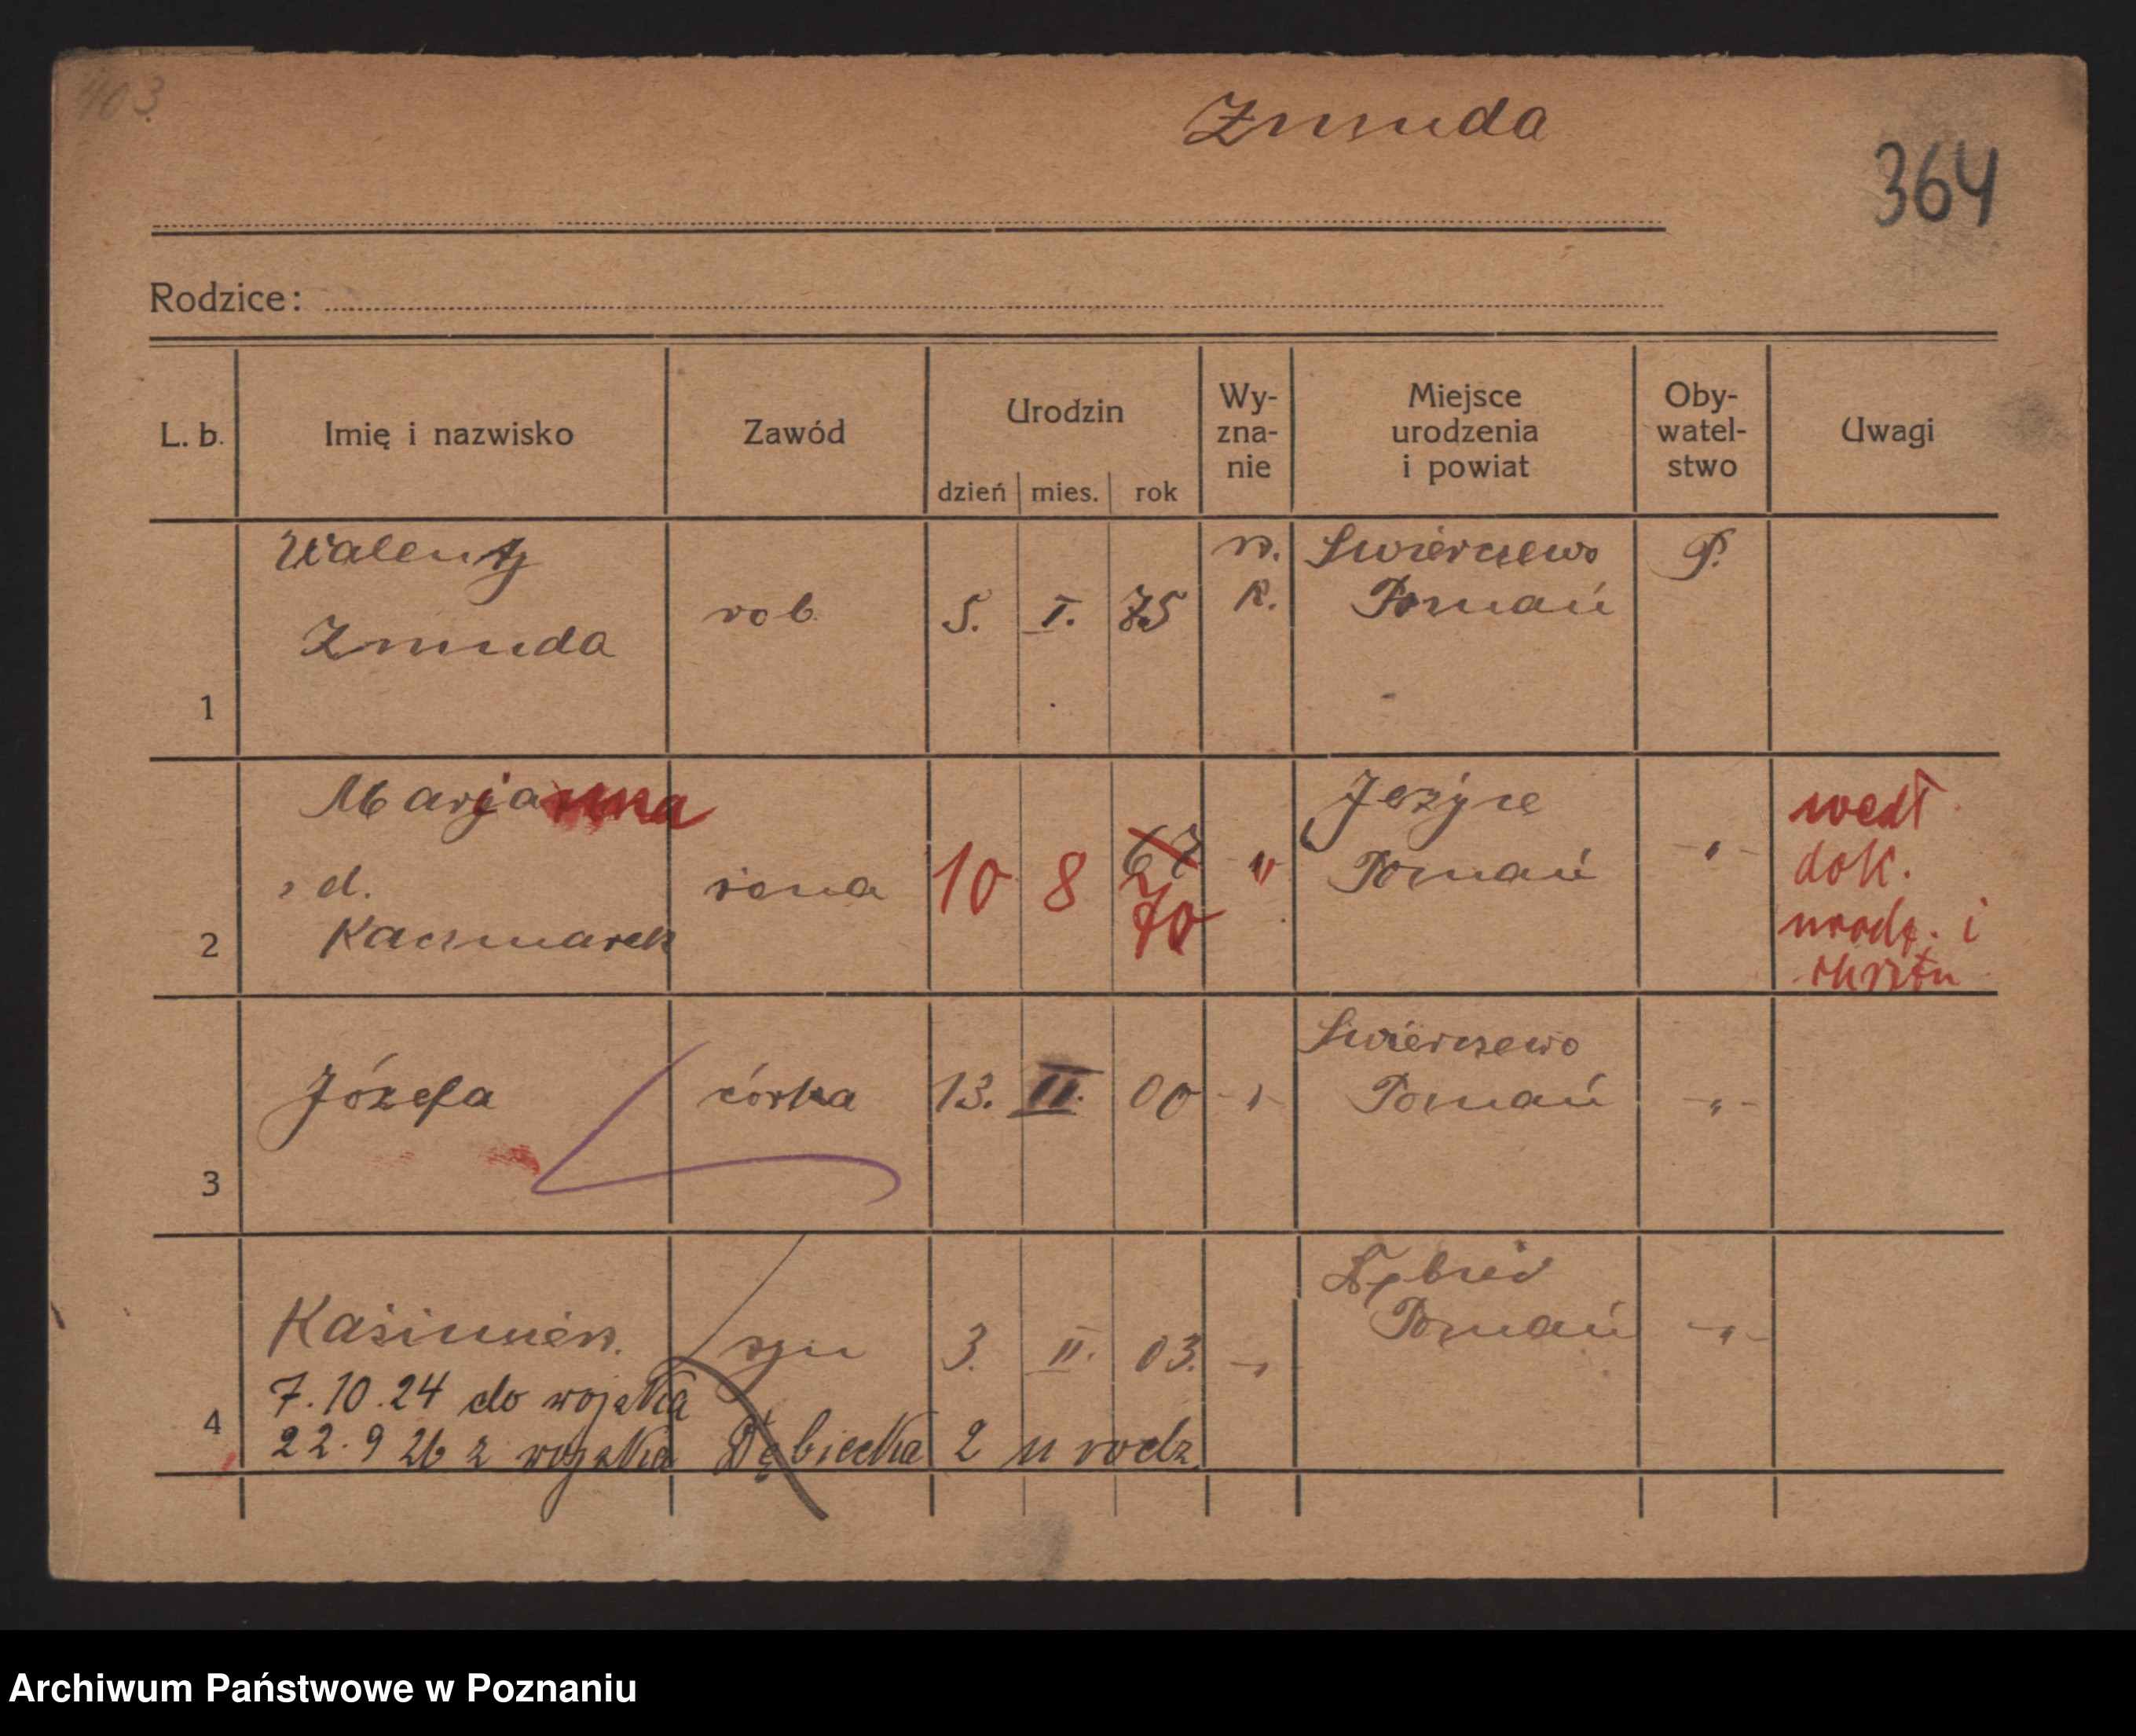 403
Żmuda
364
Rodzice:
L. b.
Imię i nazwisko
Zawód
Urodzin
dzień
mies.
rok
Wy-
zna-
nie
Miejsce
urodzenia
i powiat
Oby-
watel-
stwo
Uwagi
1
Walenty
Żmuda
rob.
5. I. 75
r.
k.
Swierczewo
Poznań
P.
2
Marjanna
z d.
Kaczmarek
żona
10 8 67
70
"
Jeżyce
Poznań
-"-
wedł
dok.
urodz. i
chrztu
3
Józefa
córka
13. II. 00
-"-
Swierczewo
Poznań
-"-
4
Kazimierz.
syn
3. II. 03.
-"-
Dębiec
Poznań
-"-
7.10.24 do wojska
22.9 26 z wojska Dębiecka 2 u rodz.
Archiwum Państwowe w Poznaniu